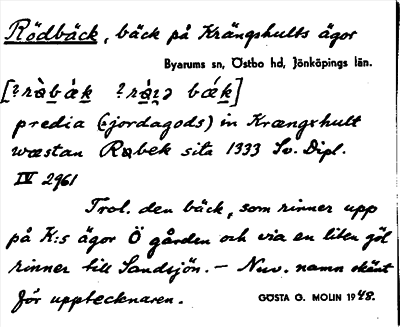 Rödbäck, bäck på Krängshults ägor
Byarums sn, Östbo hd, Jönköpings län.
predia (:jordagods) in Krængxhult
wæstan Robek sita 1333 Sv. Dipl.
IV 2961
Trol. den bäck, som rinner upp
på K:s ägor Ö gården och via en liten göl
rinner till Sandsjön. — Nuv. namn okänt
för upptecknaren.
GÖSTA G. MOLIN 1948.